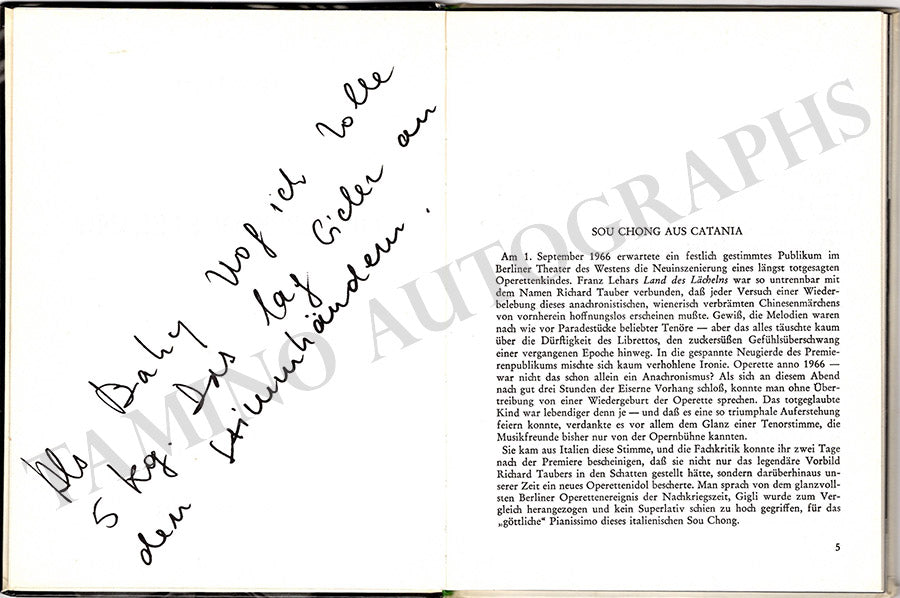 Als Baby wog ich volle
5 kg. Das lag sicher an
den Stimmbändern.
TAMINO AUTOGRAPHS
SOU CHONG AUS CATANIA
Am 1. September 1966 erwartete ein festlich gestimmtes Publikum im
Berliner Theater des Westens die Neuinszenierung eines längst totgesagten
Operettenkindes. Franz Lehars Land des Lächelns war so untrennbar mit
dem Namen Richard Tauber verbunden, daß jeder Versuch einer Wieder-
belebung dieses anachronistischen, wienerisch verbrämten Chinesenmärchens
von vornherein hoffnungslos erscheinen mußte. Gewiß, die Melodien waren
nach wie vor Paradestücke beliebter Tenöre — aber das alles täuschte kaum
über die Dürftigkeit des Librettos, den zuckersüßen Gefühlsüberschwang
einer vergangenen Epoche hinweg. In die gespannte Neugierde des Premie-
renpublikums mischte sich kaum verhohlene Ironie. Operette anno 1966 —
war nicht das schon allein ein Anachronismus? Als sich an diesem Abend
nach gut drei Stunden der Eiserne Vorhang schloß, konnte man ohne Über-
treibung von einer Wiedergeburt der Operette sprechen. Das totgeglaubte
Kind war lebendiger denn je — und daß es eine so triumphale Auferstehung
feiern konnte, verdankte es vor allem dem Glanz einer Tenorstimme, die
Musikfreunde bisher nur von der Opernbühne kannten.
Sie kam aus Italien diese Stimme, und die Fachkritik konnte ihr zwei Tage
nach der Premiere bescheinigen, daß sie nicht nur das legendäre Vorbild
Richard Taubers in den Schatten gestellt hätte, sondern darüberhinaus un-
serer Zeit ein neues Operettenidol bescherte. Man sprach von dem glanzvoll-
sten Berliner Operettenereignis der Nachkriegszeit, Gigli wurde zum Ver-
gleich herangezogen und kein Superlativ schien zu hoch gegriffen, für das
„göttliche“ Pianissimo dieses italienischen Sou Chong.
5